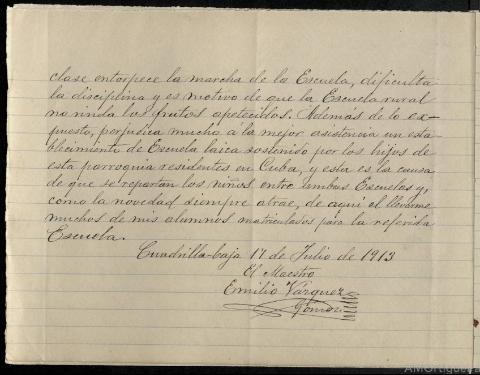 clase entorpece la marcha de la Escuela, dificulta
la disciplina y es motivo de que la Escuela rural
no rinda los frutos apetecidos. Además de lo ex-
puesto, perjudica mucho a la mejor asistencia un esta
blecimiento de Escuela laica sostenido por los hijos de
esta parroquia residentes en Cuba, y esta es la causa
de que se repartan los niños entre ambas Escuelas y,
como la novedad siempre atrae, de aquí el llevarme
muchos de mis alumnos matriculados para la referida
Escuela.
Cuadrilla-baja 17 de Julio de 1913
El Maestro
Emilio Vázquez
Gómez
AMOrtigueira